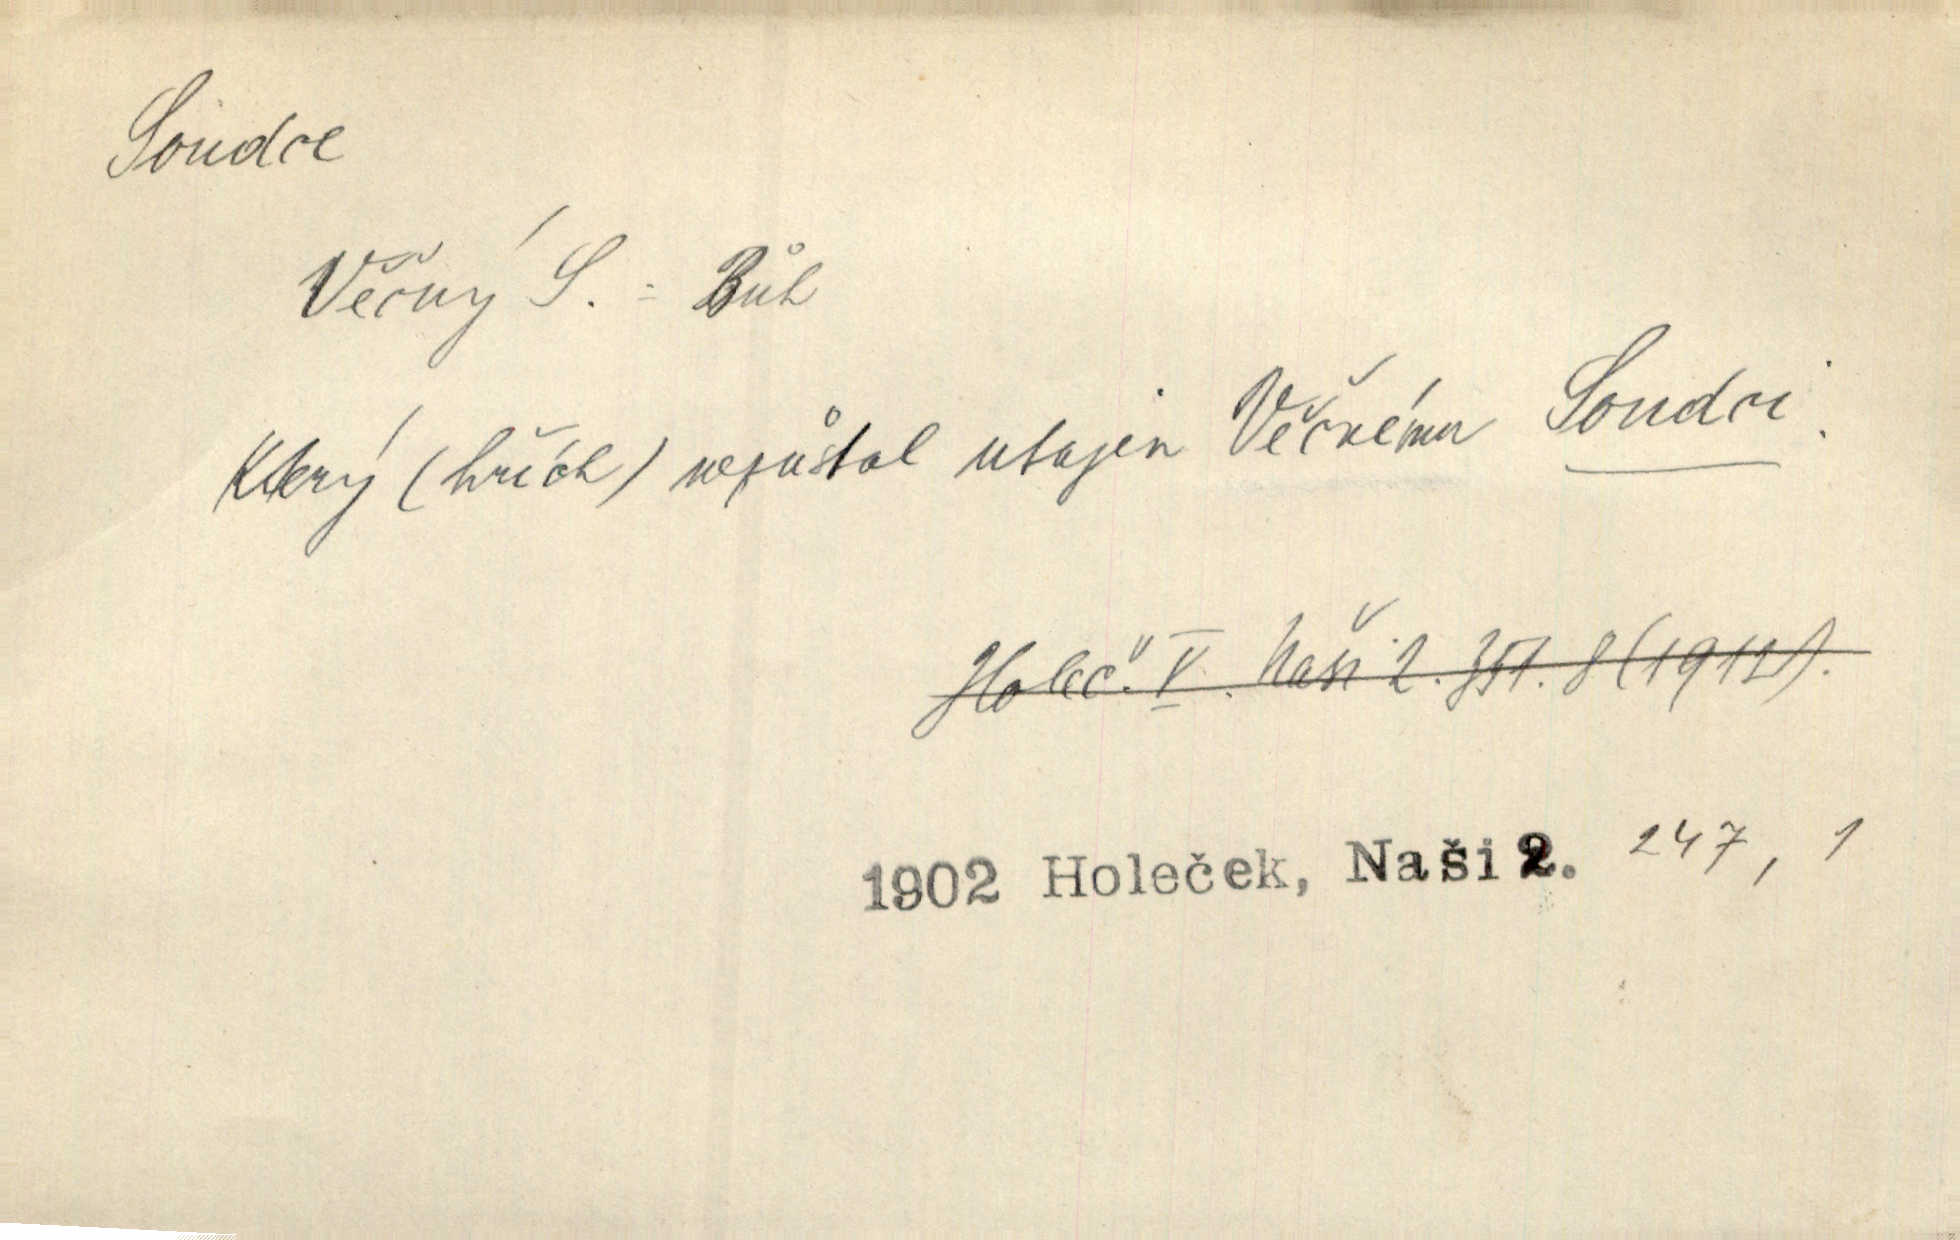 Soudce
Věčný S. = Bůh
Který (hřích) nezůstal utajen Věčnému Soudci.
Holeč. V. Naši 2. 351. 8 (1912).
1902 Holeček, Naši 2. 247, 1